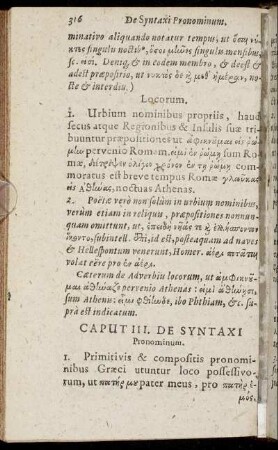 316 De Syntaxi Pronominum.
minativo aliquando notatur tempus, ut ὅσαι νύκτες
singulis noctib⁹, ὅσοι μῆνες singulis mensibus,
sc. εἰσί. Deniq, & in eodem membro, & deest &
adest præpositio, ut νυκτὸς δὲ ἢ μεθ' ἡμέραν, nocte
& interdiu.)
Locorum.
1. Urbium nominibus propriis, haud
secus atque Regionibus & Insulis suæ tribuuntur
præpositiones ut ἀφικνοῦμαι εἰς ῥώμην
pervenio Romam. εἰμὶ ἐν ῥώμῃ sum Romæ,
ὀλίγον χρόνον ἐν τῇ ῥώμῃ commoratus
est breve tempus Romæ γλαῦκας
εἰς ἀθήνας, noctuas Athenas.
2. Poëtæ verò non solùm in urbium nominibus,
verùm etiam in reliquis, præpositiones nonnunquam
omittunt, ut,
subintell. ἐπὶ, id est, posteaquam ad naves
& Hellespontum venerunt, Homer.
volat cêre pro
Cæterum de Adverbiis locorum, ut ἀφικνοῦμαι
ἀθήναζε pervenio Athenas: εἰμὶ ἀθήνησι,
sum Athenis: εἶμι φθίηνδε, ibo Phthiam, &c. suprà
est indicatum.
CAPUT III. DE SYNTAXI
Pronominum.
1. Primitivis & compositis pronominibus
Græci utuntur loco possessivorum,
ut πατήρ μου pater meus, pro πατὴρ ἐ-
μος.